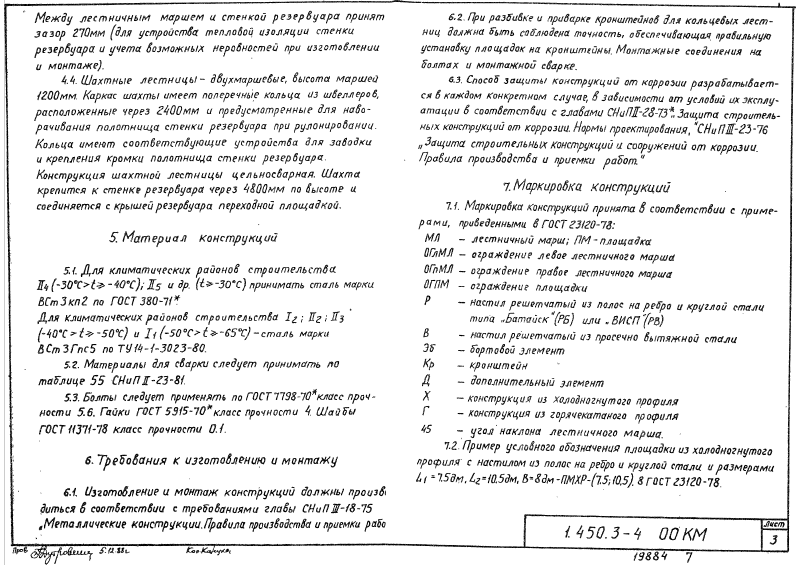 Между лестничным маршем и стенкой резервуара принят
зазор 270мм (для устройства тепловой изоляции стенки
резервуара и учета возможных неровностей при изготовлении
и монтаже).
4.4. Шахтные лестницы – двухмаршевые, высота маршей
1200мм. Каркас шахты имеет поперечные кольца из швеллеров,
расположенные через 2400мм и предусмотренные для наво-
рачивания полотнища стенки резервуара при рулонировании.
Кольца имеют соответствующие устройства для заводки
и крепления кромки полотнища стенки резервуара.
Конструкция шахтной лестницы цельносварная. Шахта
крепится к стенке резервуара через 4800мм по высоте и
соединяется с крышей резервуара переходной площадкой.
5. Материал конструкций
5.1. Для климатических районов строительства
II4 (-30°C>t⩾-40°C); II5 и др. (t⩾-30°C) принимать сталь марки
ВСт3кп2 по ГОСТ 380-71*
Для климатических районов строительства I2; II2; II3
(-40°C>t⩾-50°C) и I1 (-50°C>t⩾-65°C) – сталь марки
ВСт3Гпс5 по ТУ14-1-3023-80.
5.2. Материалы для сварки следует принимать по
таблице 55 СНиП II-23-81.
5.3. Болты следует применять по ГОСТ 7798-70* класс проч-
ности 5.6. Гайки ГОСТ 5915-70* класс прочности 4. Шайбы
ГОСТ 11371-78 класс прочности 0.1.
6. Требования к изготовлению и монтажу
6.1. Изготовление и монтаж конструкций должны произв
диться в соответствии с требованиями главы СНиП III-18-75
„Металлические конструкции. Правила производства и приемки рабо
6.2. При разбивке и приварке кронштейнов для кольцевых лест-
ниц должна быть соблюдена точность, обеспечивающая правильную
установку площадок на кронштейны. Монтажные соединения на
болтах и монтажной сварке.
6.3. Способ защиты конструкций от коррозии разрабатывает-
ся в каждом конкретном случае, в зависимости от условий их эксплу-
атации в соответствии с главами СНиП II-28-73* „Защита строитель-
ных конструкций от коррозии. Нормы проектирования," СНиП III-23-76
„Защита строительных конструкций и сооружений от коррозии.
Правила производства и приемки работ."
7. Маркировка конструкций
7.1. Маркировка конструкций принята в соответствии с приме-
рами, приведенными в ГОСТ 23120-78:
МЛ – лестничный марш; ПМ – площадка
ОГлМЛ – ограждение левое лестничного марша
ОГпМЛ – ограждение правое лестничного марша
ОГПМ – ограждение площадки
Р – настил решетчатый из полос на ребро и круглой стали
типа „Батайск" (РБ) или „ВИСП" (РВ)
В – настил решетчатый из просечно вытяжной стали
Эб – бортовой элемент
Кр – кронштейн
Д – дополнительный элемент
Х – конструкция из холодногнутого профиля
Г – конструкция из горячекатаного профиля
45 – угол наклона лестничного марша.
7.2. Пример условного обозначения площадки из холодногнутого
профиля с настилом из полос на ребро и круглой стали и размерами
L1=7.5дм, L2=10.5дм, В=8дм – ПМХР-(7.5;10,5). 8 ГОСТ 23120-78.
1.450.3-4 00КМ
Лист
3
Пров. 5.12.83г.
19884 7